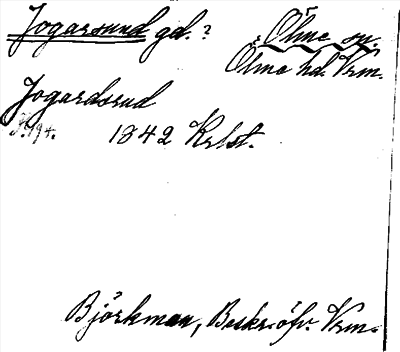 Jogarsund gd.? Ölme sn.
Ölme hd. Vrm.
Jogardsrud
S. 194. 1842 Krlst.
Björkman, Beskr. öfv. Vrm.